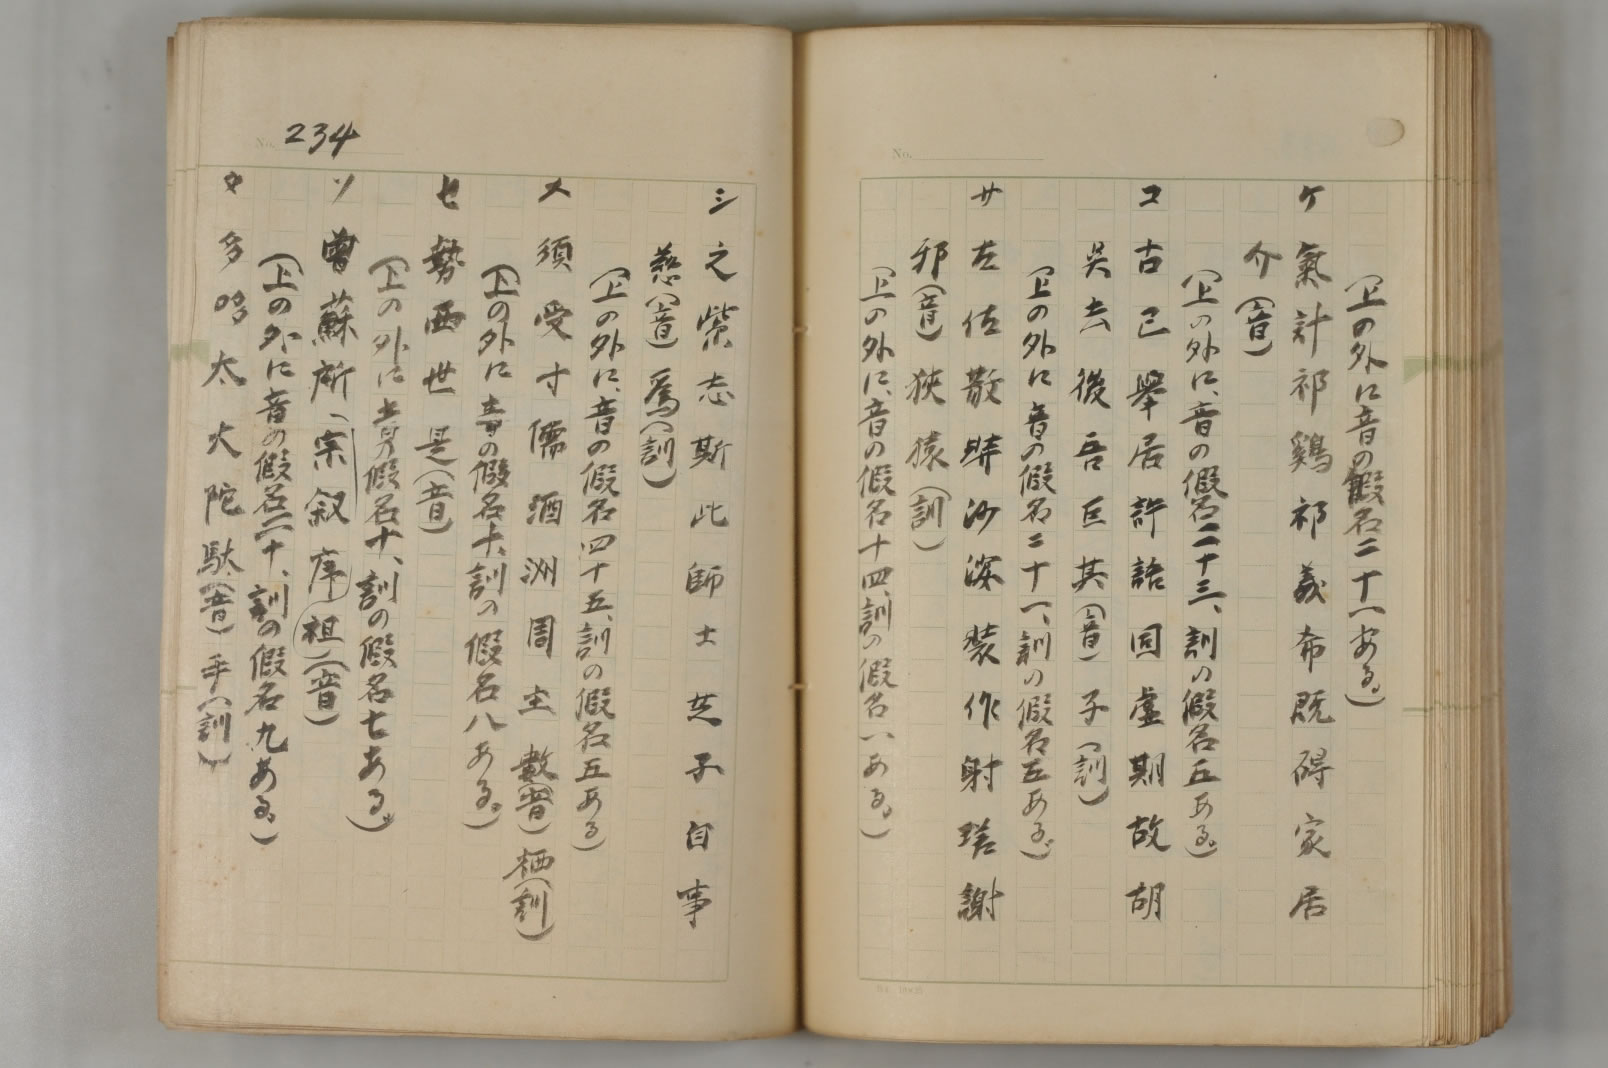 (上の外に音の假名二十一ある。)
ケ 氣計祁鷄祁義希既碍家居
介(音)
(上の外に、音の假名二十三、訓の假名五ある。)
コ 古己擧居許語固虛期故胡
吳去後吾巨其(音)子(訓)
(上の外に音の假名二十一、訓の假名五ある。)
サ 左佐散沙裝作射瑳謝
邪(音)狹猿(訓)
(上の外に、音の假名十四、訓の假名一ある。)
234
シ 之紫志斯此師士芝子自事
慈(音)爲(訓)
(上の外に、音の假名四十五、訓の假名五ある)
ス 須受寸儒酒洲周主數(音)栖(訓)
(上の外に音の假名十、訓の假名八ある。)
セ 勢西世是(音)
(上の外に音の假名十、訓の假名七ある。)
ソ 曾蘇所宗叙序祖(音)
(上の外に音の假名二十、訓の假名九ある。)
タ 多哆太大陀駄(音)手(訓)